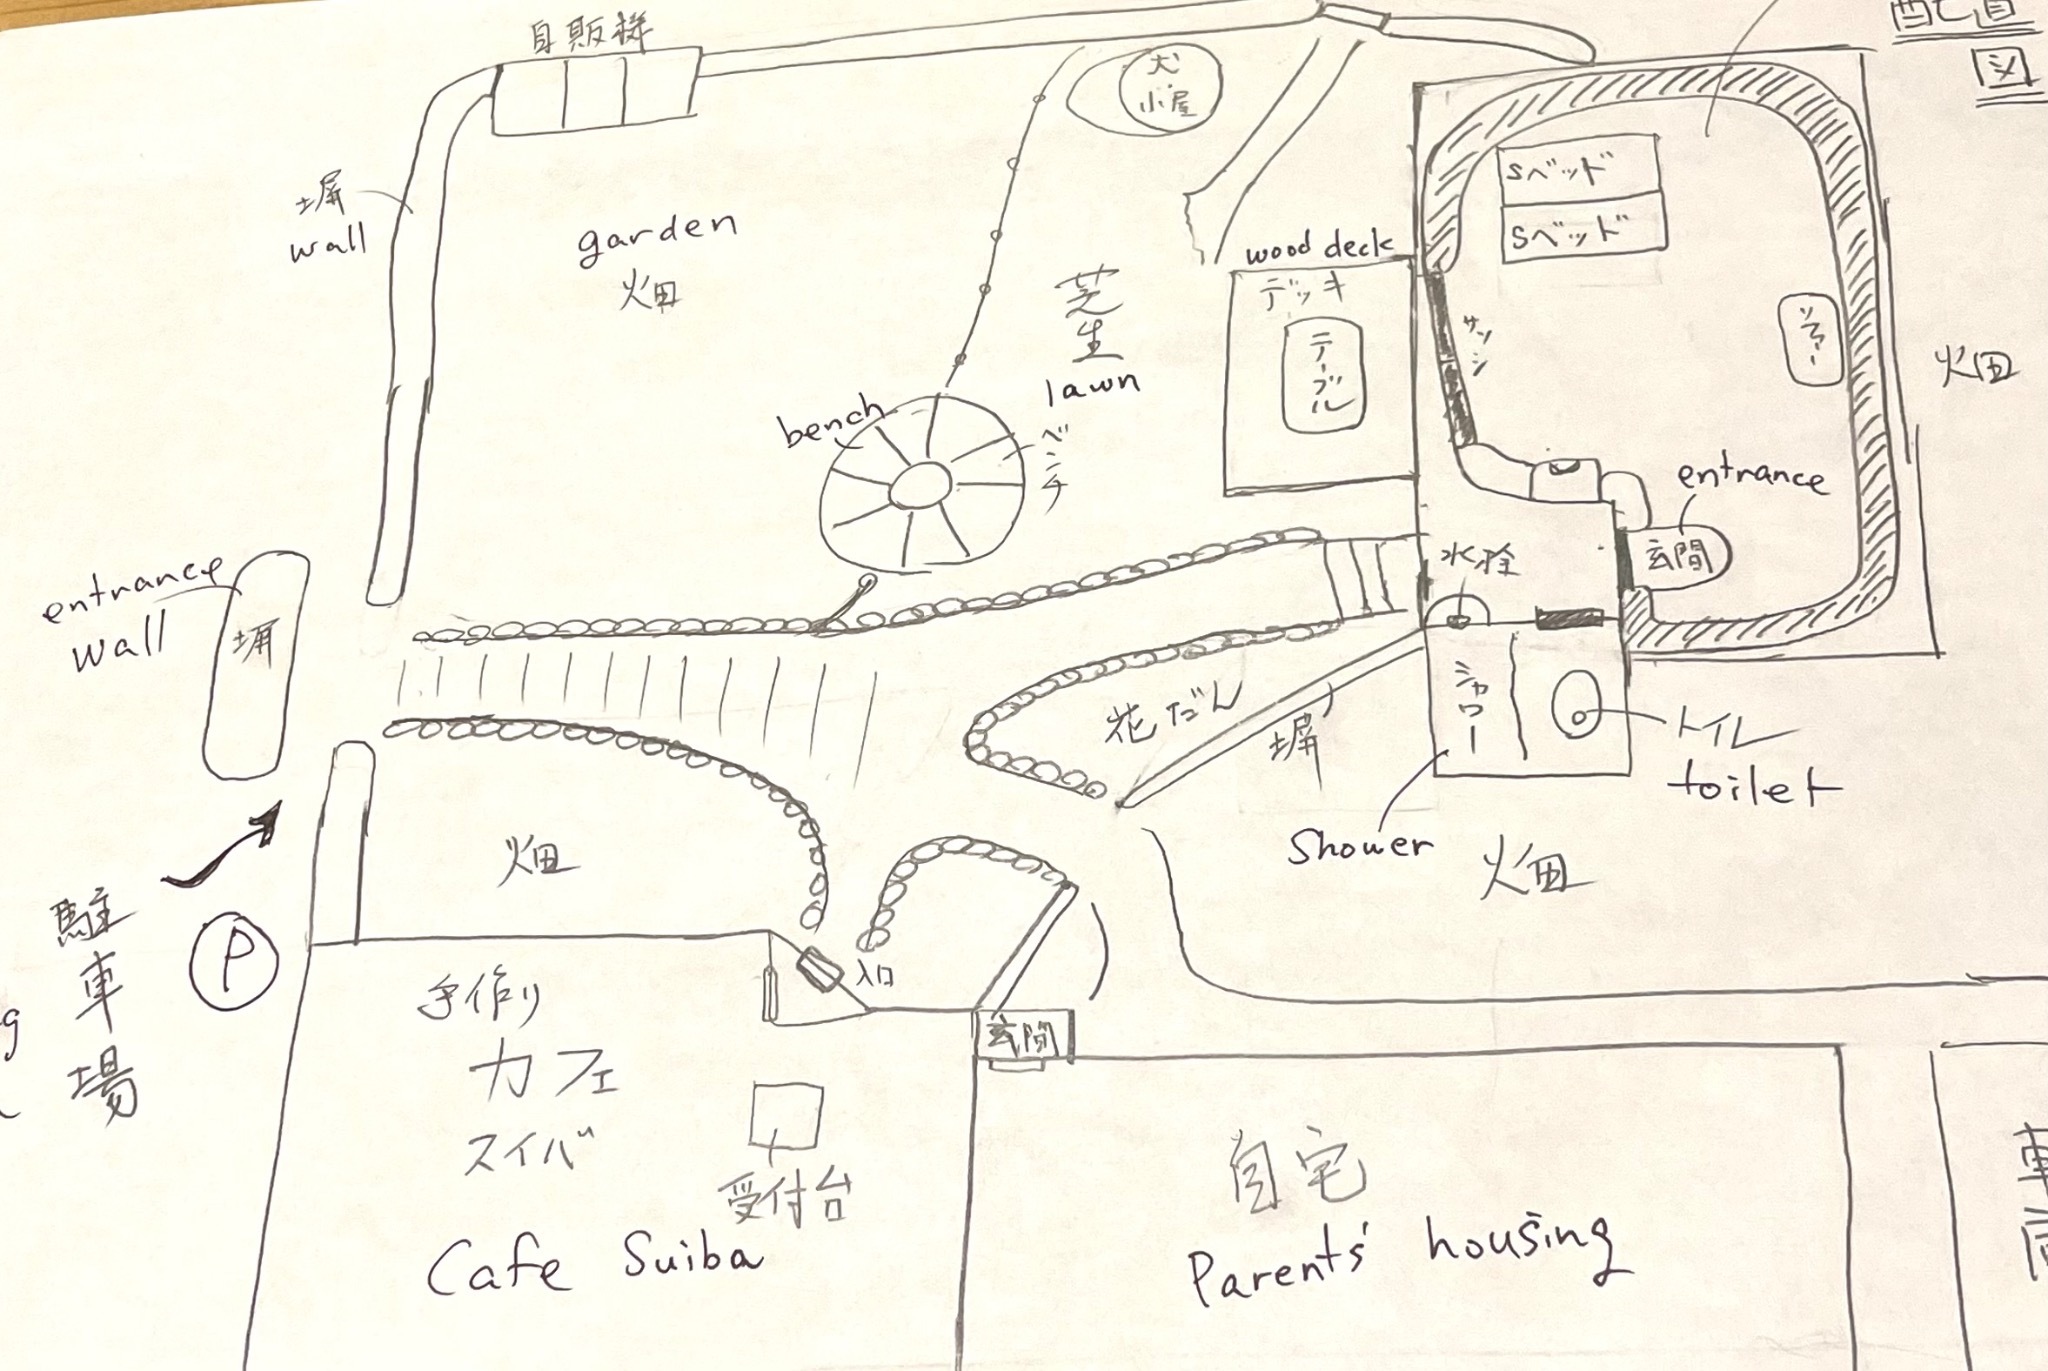 自販機
配置
図
犬
小屋
塀
wall
garden
畑
芝
生
lawn
wood deck
デッキ
テーブル
サッシ
Sベッド
Sベッド
ソファー
畑
bench
ベンチ
entrance
玄関
水栓
entrance
wall
塀
花だん
塀
シャワー
トイレ
toilet
shower
畑
畑
駐
車
場
P
入口
手作り
カフェ
スイバ
受付台
Cafe Suiba
玄関
自宅
Parents' housing
車